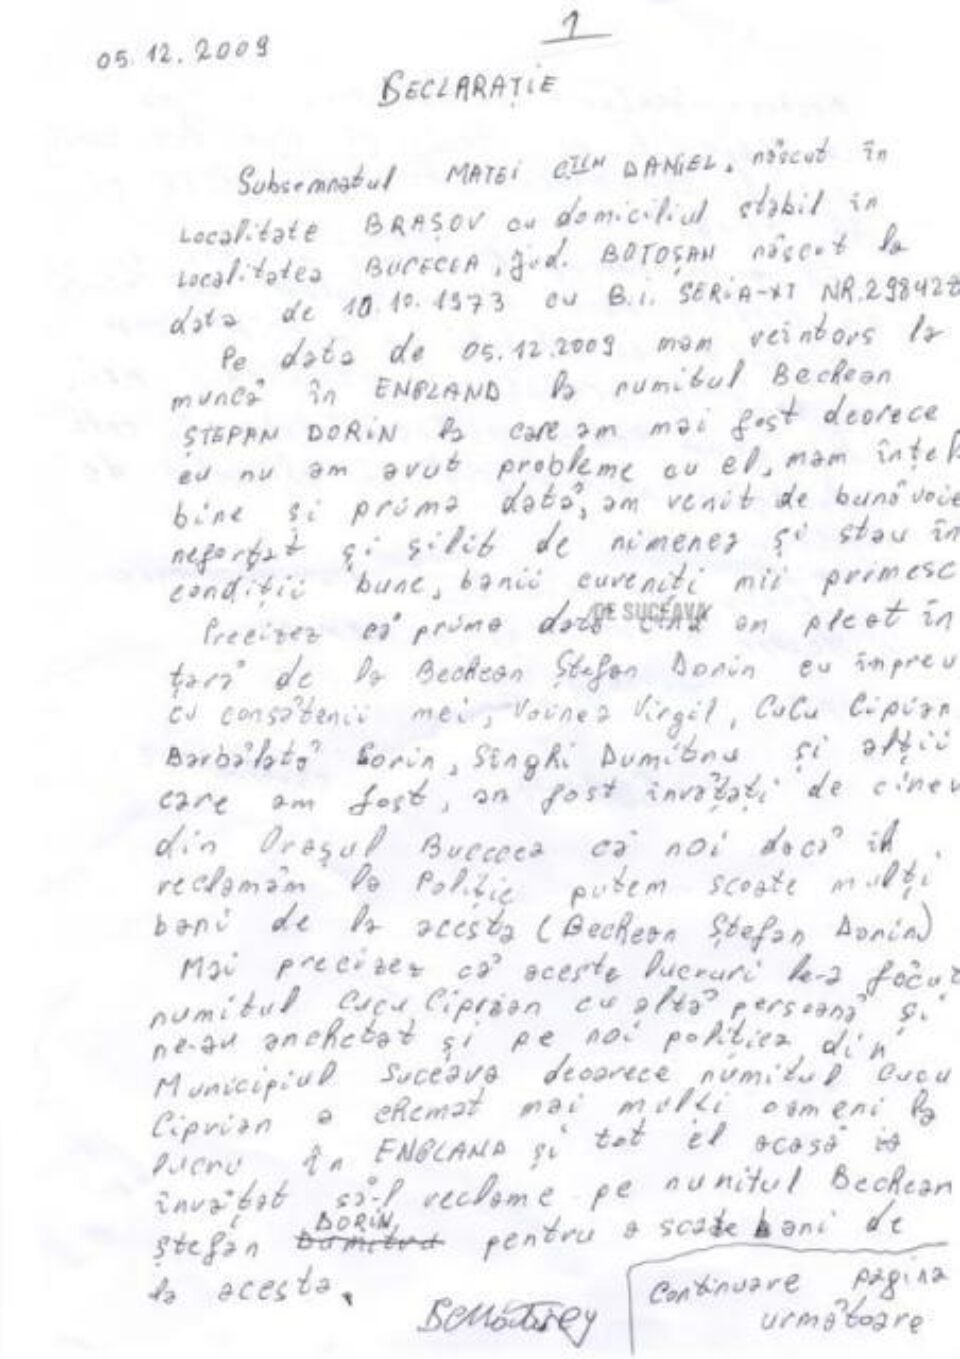 1
05.12.2009
DECLARAȚIE
Subsemnatul MATEI DANIEL, născut în
Localitate BRAȘOV cu domiciliul stabil în
Localitatea BUCECEA, jud. BOTOȘAN născut la
data de 10.10.1973 cu B.i. SERiA-XT NR.298427
Pe data de 05.12.2009 mam reintors la
muncă în ENGLAND la numitul Bechean
ȘTEFAN DORiN la care am mai fost deorece
eu nu am avut probleme cu el, mam înțel
bine și prima dată, am venit de bunăvoie
neforțat și silit de nimenea și stau în
condiții bune, banii cuveniți mii primesc
DE SUCEAVA
Precizez că prima dată cînd am plecat în
țară de la Bechean Ștefan Dorin eu împreu
cu consătenii mei, Voinea Virgil, CuCu Ciprian
Barbălată Sorin, Singhi Dumitru și alții
care am fost, an fost învățați de cinev
din Orașul Bucecea că noi dacă îl
reclamăm la Poliție putem scoate mulți
bani de la acesta (Bechean Ștefan Dorin)
Mai precizez că aceste lucruri le-a făcut
numitul Cucu Ciprian cu altă persoană și
ne-au anchetat și pe noi poliția din
Municipiul Suceava deoarece numitul Cucu
Ciprian a chemat mai mulți oameni la
lucru în ENGLAND și tot el acasă ia
învățat să-l reclame pe numitul Bechean
DORiN
Ștefan Dumitru pentru a scoate bani de
la acesta.
continuare pagina
următoare